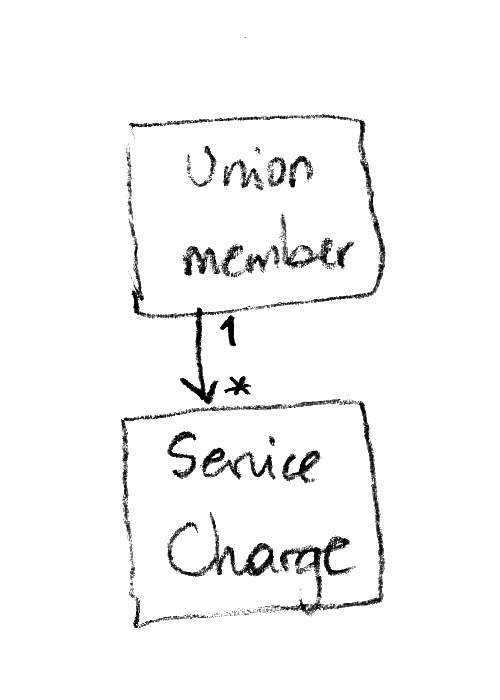 Union
member
1
*
Service
Charge